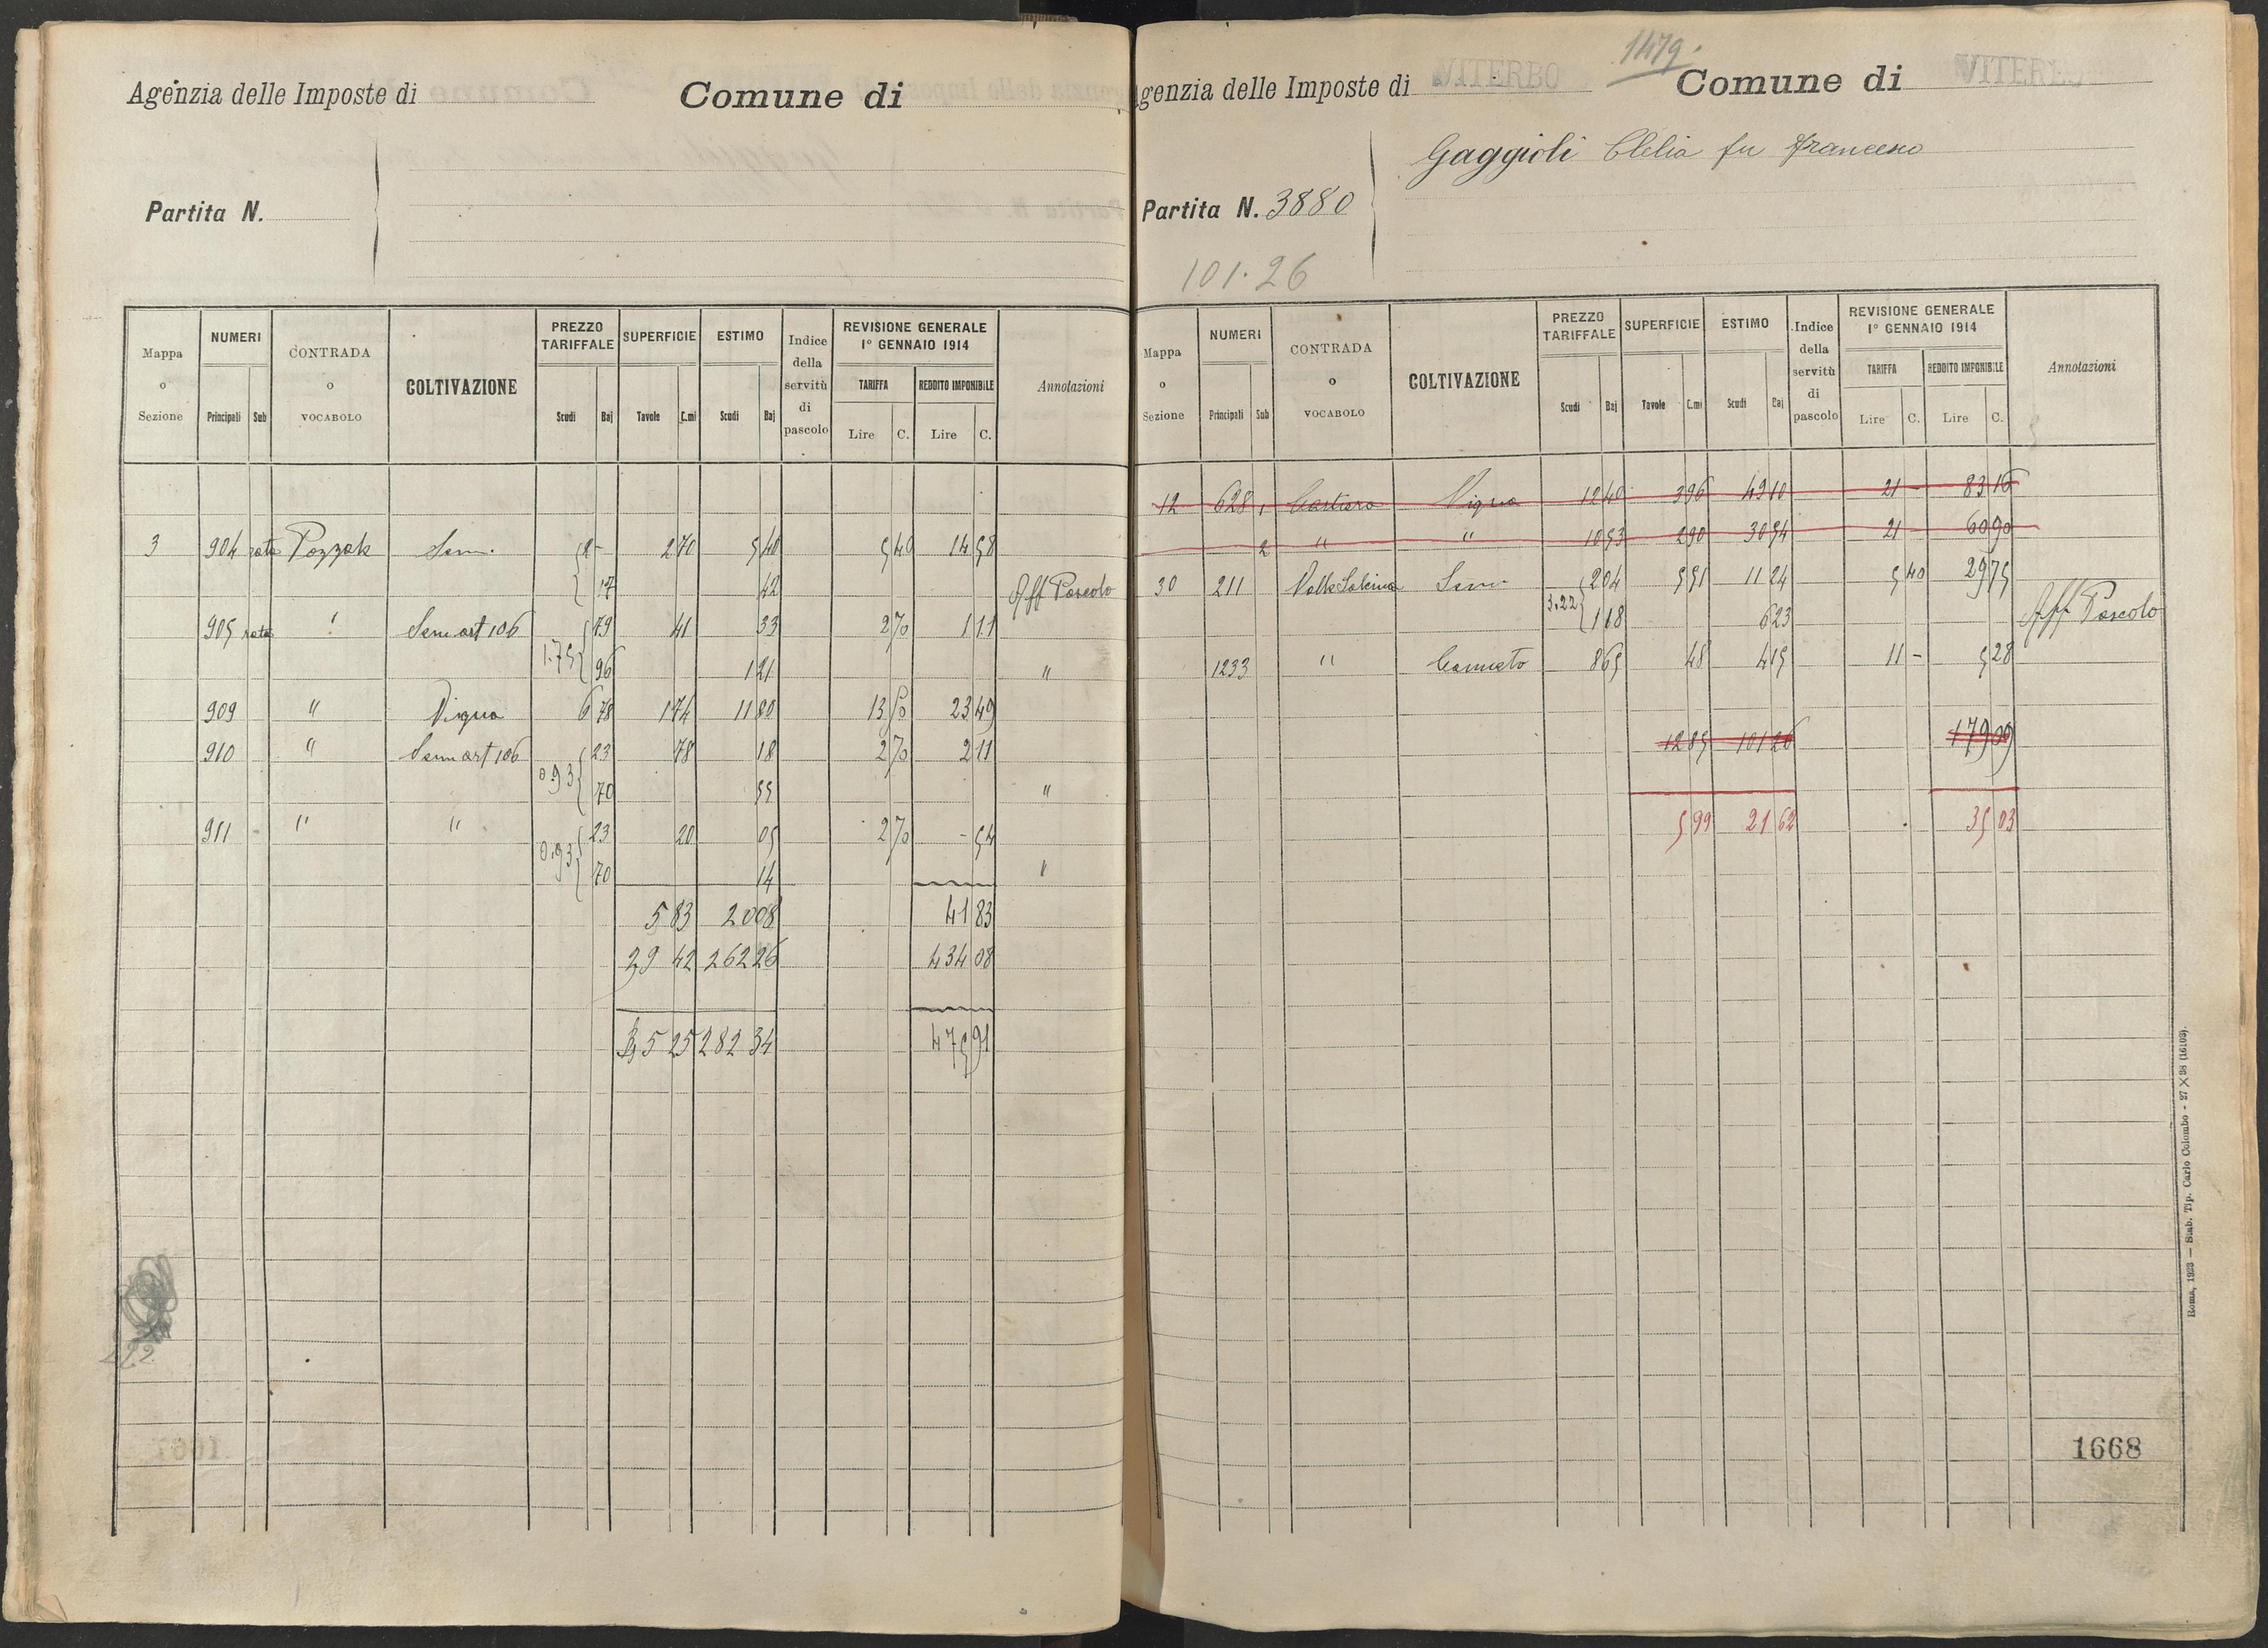 Agenzia delle Imposte di
Comune di
Partita N.
Mappa o Sezione
NUMERI
Principali Sub
CONTRADA o VOCABOLO
COLTIVAZIONE
PREZZO TARIFFALE
Scudi Baj
SUPERFICIE
Tavole C.mi
ESTIMO
Scudi Baj
Indice della servitù di pascolo
REVISIONE GENERALE 1° GENNAIO 1914
TARIFFA
Lire C.
REDDITO IMPONIBILE
Lire C.
Annotazioni
3 904 rata Sem. 2 - 2 70 5 40 5 40 14 58
17 42 Aff Pascolo
905 rata " Sem art 106 79 41 33 2 70 1 11
1.75 96 "
909 " Vigna 6 78 1 74 11 80 13 50 23 49
910 " Sem art 106 23 78 18 2 70 2 11
0.93 70 55 "
911 - " " 23 20 05 2 70 - 54
0.93 70 14 "
5 83 20 08 41 83
29 42 262 26 434 08
35 25 282 34 475 91
1479.
Agenzia delle Imposte di VITERBO
Comune di VITERBO
Gaggioli Clelia fu Francesco
Partita N. 3880
101.26
Mappa o Sezione
NUMERI
Principali Sub
CONTRADA o VOCABOLO
COLTIVAZIONE
PREZZO TARIFFALE
Scudi Baj
SUPERFICIE
Tavole C.mi
ESTIMO
Scudi Baj
Indice della servitù di pascolo
REVISIONE GENERALE 1° GENNAIO 1914
TARIFFA
Lire C.
REDDITO IMPONIBILE
Lire C.
Annotazioni
12 628 1 Cartiera Vigna 12 40 3 96 49 10 21 - 83 16
2 " " 10 53 2 90 30 54 21 - 60 90
30 211 Sem. 2 04 5 51 11 24 5 40 29 75
3.22 1 18 6 23 Aff Pascolo
1233 " Canneto 8 65 48 4 15 11 - 5 28
12 85 101 26 179 09
5 99 21 62 35 03
Roma, 1923 — Stab. Tip. Carlo Colombo - 27 X 38 (16103).
1668